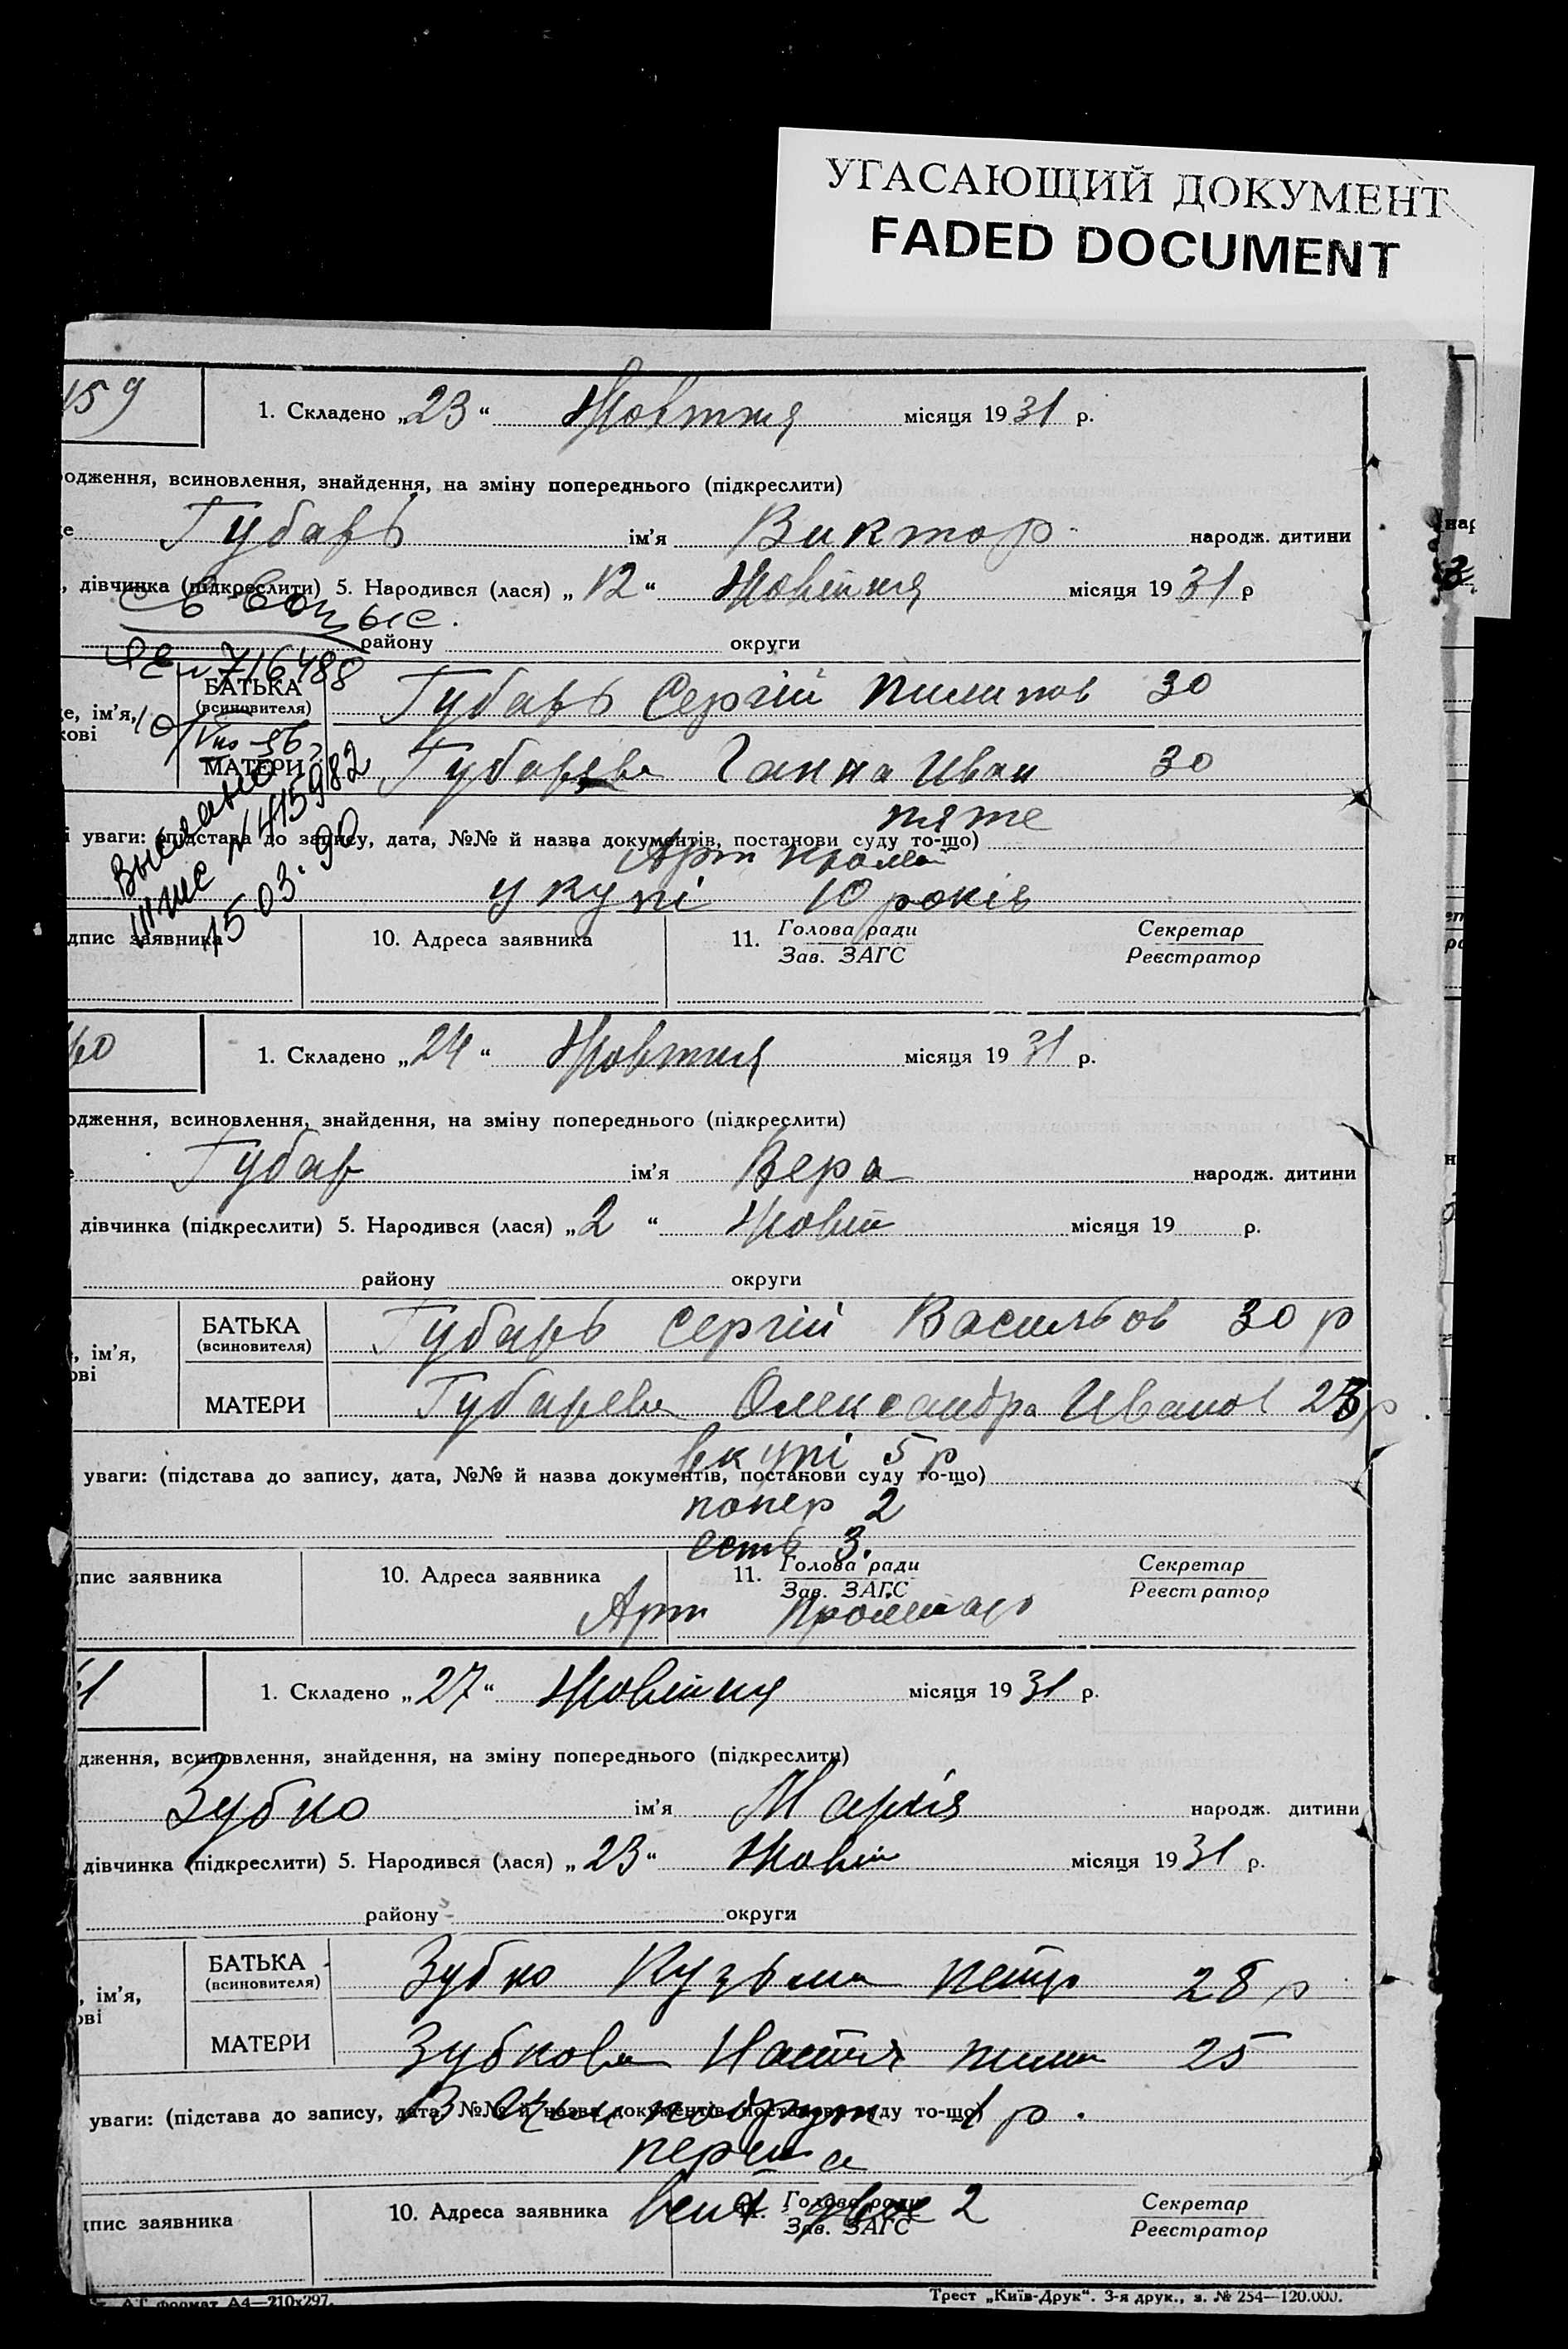 УГАСАЮЩИЙ ДОКУМЕНТ
FADED DOCUMENT
159
1. Складено „23“ Жовтня місяця 1931 р.
одження, всиновлення, знайдення, на зміну попереднього (підкреслити)
е Губарь ім’я Виктор народж. дитини
, дівчинка (підкреслити) 5. Народився (лася) „12“ Жовтня місяця 1931 р
району округи
716488
БАТЬКА
(всиновителя)
Губарь Сергій Пилипов 30
е, ім’я,
кові
МАТЕРИ
Губарева Ганна Иван 30
пяте
і уваги: (підстава до запису, дата, №№ й назва документів, постанови суду то-що)
Арт пролет
укупі 10 років
Выслано
N 415982
15.03.90
дпис заявника 10. Адреса заявника 11. Голова ради Секретар
Зав. ЗАГС Реєстратор
60
1. Складено „24“ Жовтня місяця 1931 р.
одження, всиновлення, знайдення, на зміну попереднього (підкреслити)
е Губар ім’я Вера народж. дитини
дівчинка (підкреслити) 5. Народився (лася) „2“ Жовт місяця 19 р.
району округи
БАТЬКА
(всиновителя)
Губарь Сергій Васильов 30 р
, ім’я,
ові
МАТЕРИ
Губарева Олександра Иванов р
вкупі 5 р
уваги: (підстава до запису, дата, №№ й назва документів, постанови суду то-що)
попер 2
есть 3.
пис заявника 10. Адреса заявника 11. Голова ради Секретар
Зав. ЗАГС Реєстратор
Арт Пролетар
61
1. Складено „27“ Жовтня місяця 1931 р.
дження, всиновлення, знайдення, на зміну попереднього (підкреслити)
Зубко ім’я Марія народж. дитини
дівчинка (підкреслити) 5. Народився (лася) „23“ Жовт місяця 1931 р.
району округи
БАТЬКА
(всиновителя)
Зубко Кузьма Петр 28 р
, ім’я,
ові
МАТЕРИ
Зубкова Настя пили 25
В 1 р.
уваги: (підстава до запису, дата, №№ й назва документів, постанови суду то-що)
перша
2
дпис заявника 10. Адреса заявника 11. Голова ради Секретар
Зав. ЗАГС Реєстратор
АТ формат А4—210х297.
Трест „Київ-Друк“. 3-я друк., з. № 254—120.000.